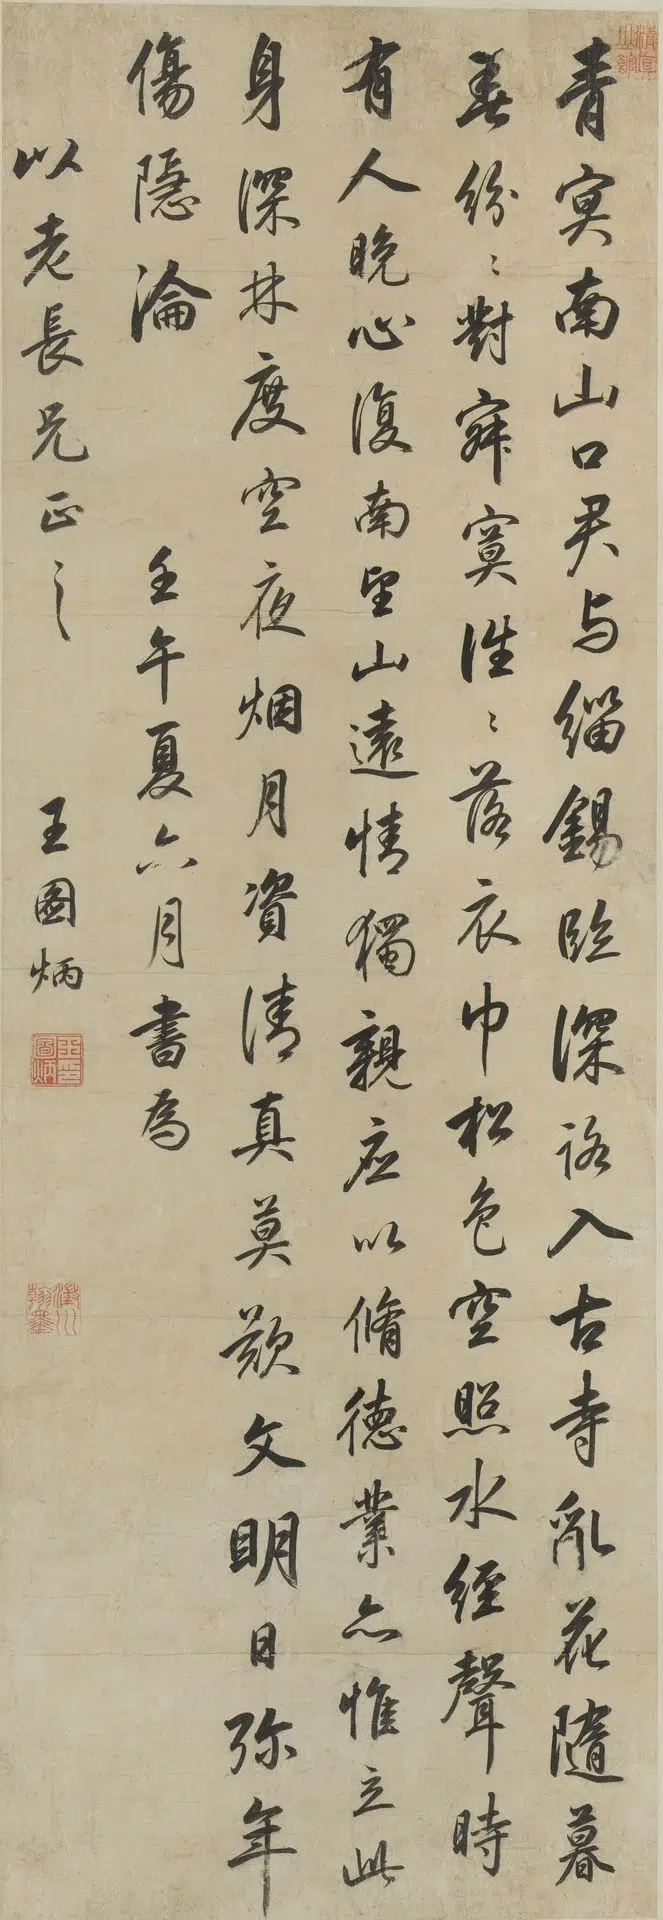 青冥南山口君与緇錫臨深路入古寺亂花隨暮
春紛〻對寂寞往〻落衣巾松色空照水經聲時
有人晚心復南望山遠情獨親应以脩德業亦惟立此
身深林度空夜烟月資清真莫歎文明日弥年
傷隱淪 壬午夏六月書為
以老長兄正之 王圖炳
王圖炳印
澂川翰墨